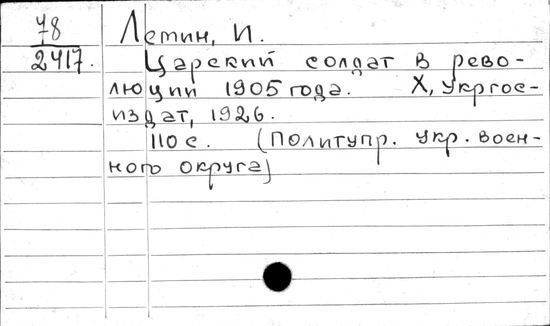 78
2417.
Летин, И.
Царский солдат в рево-
люции 1905 года. Х, Укргос-
издат, 1926.
110 с. (Политупр. Укр. воен-
ного округа)